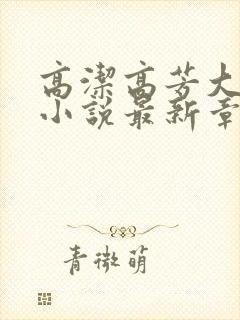 高潔高芳大
小說最新章
青微萌